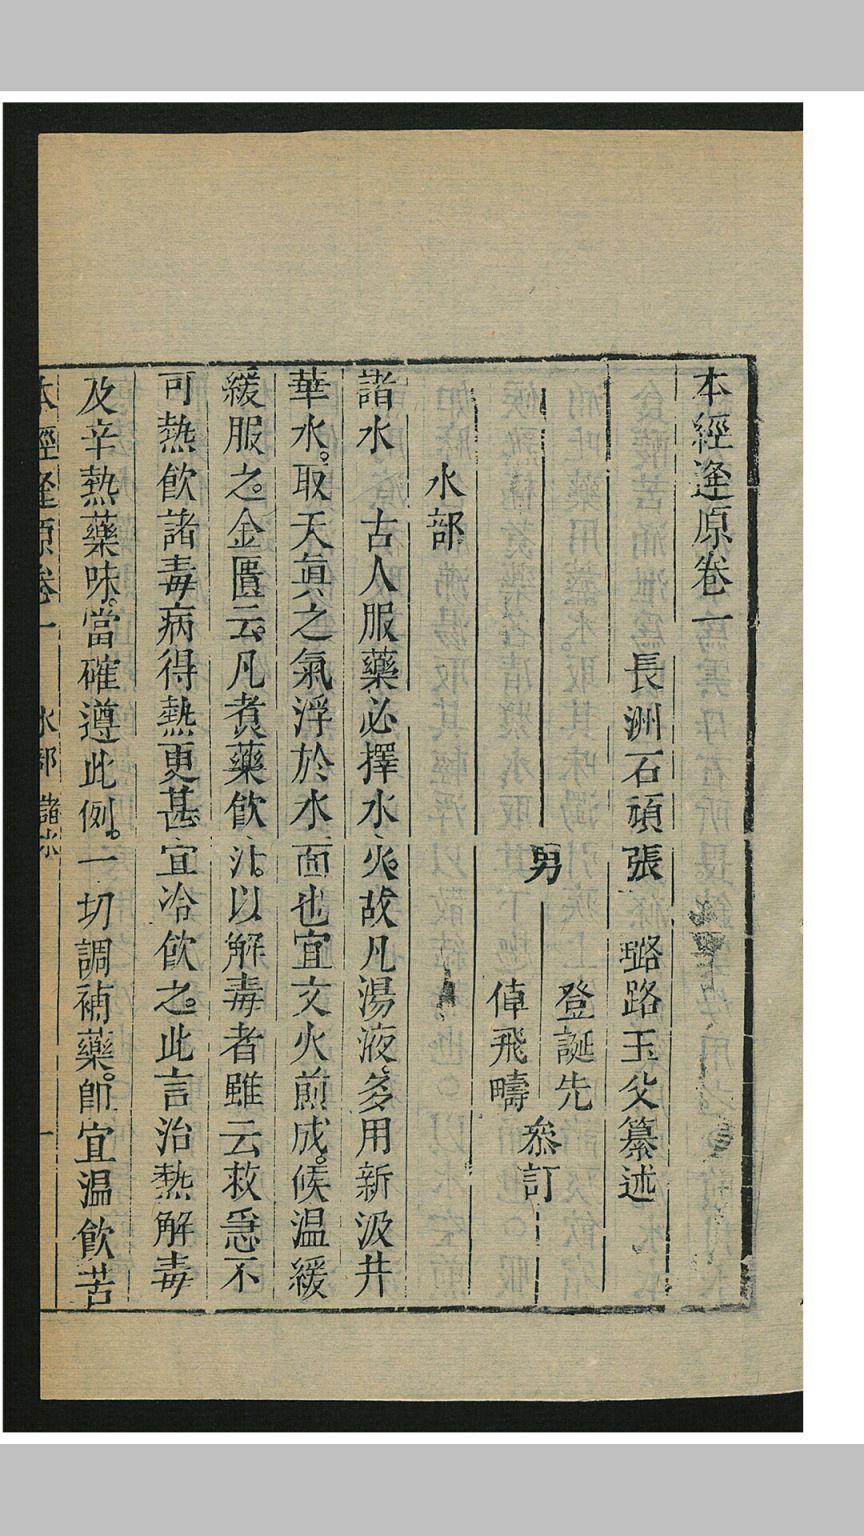 本經逢原卷一
長洲石頑張　璐路玉父纂述
男
登誕先
倬飛疇
叅訂
水部
諸水　古人服藥必擇水火。故凡湯液。多用新汲井
華水。取天眞之氣浮於水面也宜文火煎成。候温緩
緩服之。金匱云。凡煮藥飲汁。以解毒者雖云救急不
可熱飲諸毒病得熱更甚。宜冷飲之。此言治熱解毒
及辛熱藥味。當確遵此例。一切調補藥。卽宜温飲苦
本經逢原卷一　水部　諸水　一